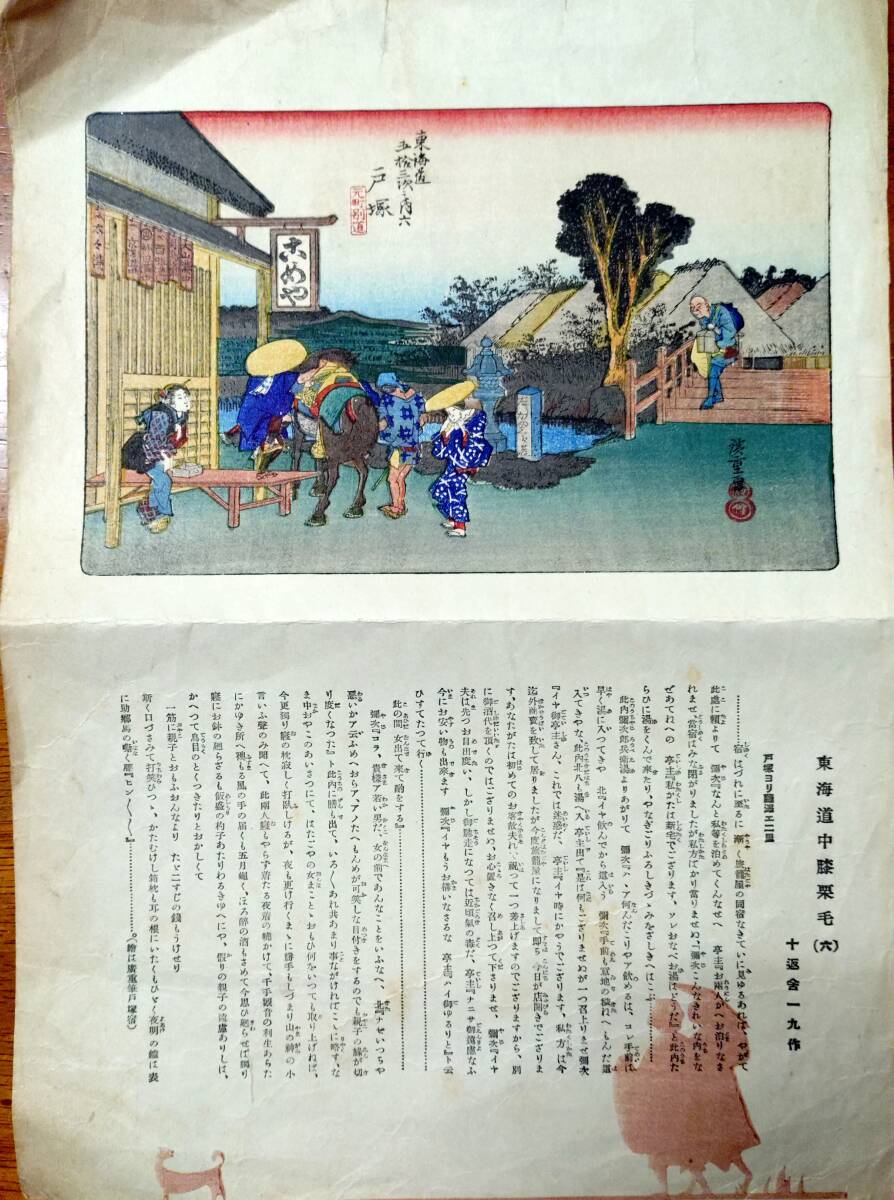 東海道
五拾三次之内六
戸塚
元町別道
こめや
廣重画
東海道中膝栗毛(六)
十返舍一九作
戸塚ヨリ藤澤エ二里
…………宿はづれに至るに漸く旅籠屋の同宿なきていに見ゆるあれば、やがて
此處に頼よりて 彌次『なんと私等を泊めてくんなせへ 亭主『お兩人がへお泊りなさ
れませ、當宿はみな閉がりましたが私方ばかり當りませぬ、『彌次こんなきれいな内をな
ぜあてれへの 亭主『私かたは新宅でござります、ソレおなべお湯はどうだ』と此内た
らひに湯をくんで來り、やなぎごりふろしきづゝみをざしきへはこぶ……………
此内彌次郎兵衛湯よりあがりて 彌次『ハヽア何んだこりやア飲めるは、コレ手前は
早く湯に入つてきや 北『イヤ飲んでから這入う 彌次『手前も意地の穢れへもんだ這
入てきやな、此内北八も湯へ入、亭主出て『是は何もござりませぬが一つ召上りませ彌次
『イヤ御亭主さん、これでは迷惑だ、亭主『イヤ時にかやうでござります、私方は今
迄外商賣を致して居りましたが今度旅籠屋になりまして即ち今日が店開きでござりま
す、あなたがたは初めてのお客故夫れ、祝つて一つ差上げますのでござりますから、別
に御酒代を頂くのではござりませぬ、お心置きなく召し上つて下さりませ、彌次『イヤ
夫は先つお目出度い、しかし御馳走になつては近頃氣の毒だ、亭主『ナニサ御遠慮なふ
今にお安い物も出來ます 彌次『イヤもうお構いなさるな 亭主『ハイ御ゆるりと』ト云
ひすてたつて行く…………
此の間 女出て來て酌をする』…………
彌次『コラ、貴樣ア若い男だ、女の前であんなことをいふなへ、北『ナゼいつちや
悪いかア云ふめへおらア、アノたへもんめが可笑しな目付きをするのでも親子の縁が切
り度くなつた』ト此内に膳も出て、いろ〱あれ共あまり事ながければこゝに略す、な
ま中おやこのあいさつにて、はたごやの女まことゝおもひ何をいつても取り上げねば、
今更獨り寢の枕寂しく打臥しけるが、夜も更け行くまゝに勝手もしづまり山の神の小
言いふ聲のみ聞へて、此兩人寢もやらず着たる夜着の嘯かけて、千手觀音の利生あらた
にかゆき所へ穗もる風の手の届くも五月蠅く、ほろ醉の酒もさめて今思ひ廻らせば獨り
寢にお鉢の廻らざるも飯盛の杓子あたりわるきゆへにや、假りの親子の遠慮ありしは、
かへつて鳥目のとくつきたりとおかしくて
一筋に親子とおもふおんなより たゞ二すじの錢もうけせり
斯く口づさみて打笑ひつゝ、かたむけし箱枕も耳の根にいたくもひゞく夜明の鐘は表
に助郷馬の嘶く聲『ヒン〱〱』…………(繪は廣重筆戸塚宿)